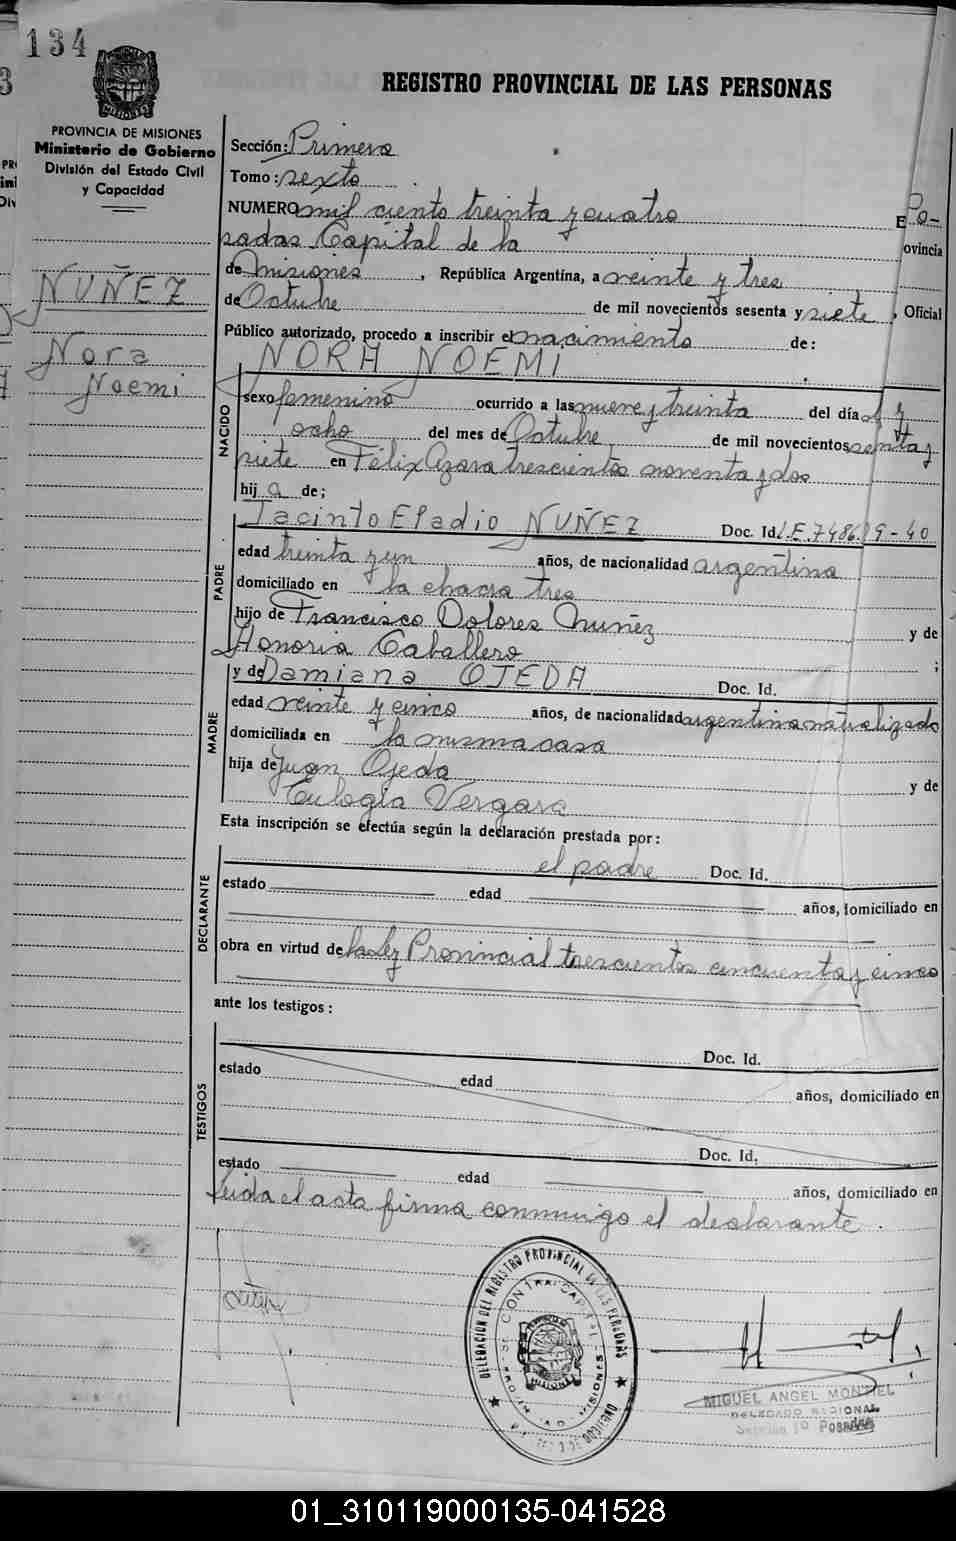 134
REGISTRO PROVINCIAL DE LAS PERSONAS
PROVINCIA DE MISIONES
Ministerio de Gobierno
División del Estado Civil
y Capacidad
NUÑEZ
Nora
Noemi
Sección: Primera
Tomo: sexto
NUMERO mil ciento treinta y cuatro E Po-
sadas Capital de la ovincia
de misiones, República Argentina, a veinte y tres
de Octubre de mil novecientos sesenta y siete, Oficial
Público autorizado, procedo a inscribir el nacimiento de:
NORA NOEMI
NACIDO
sexo femenino ocurrido a las nueve y treinta del día
ocho del mes de Octubre de mil novecientos
siete en Félix Azara trescientos noventa y dos
hija de;
PADRE
Jacinto Eladio NUÑEZ Doc. Id. L.E.7486.
edad treinta y un años, de nacionalidad argentina
domiciliado en la chacra tres
hijo de Francisco Dolores Nuñez y de
Honoria Caballero;
MADRE
y de Damiana OJEDA Doc. Id.
edad veinte y cinco años, de nacionalidad argentina
domiciliada en la misma casa
hija de Juan Ojeda y de
Eulogia Vergara
Esta inscripción se efectúa según la declaración prestada por:
DECLARANTE
el padre Doc. Id.
estado edad años, domiciliado en
obra en virtud de la Ley Provincial trescientos cincuenta y cinco
ante los testigos:
TESTIGOS
Doc. Id.
estado edad años, domiciliado en
Doc. Id.
estado edad años, domiciliado en
Leida el acta firma conmmigo el declarante.
DELEGACION DEL REGISTRO PROVINCIAL DE LAS PERSONAS
MISIONES
MIGUEL ANGEL MONTIEL
Sección 1º Posadas
01_310119000135-041528